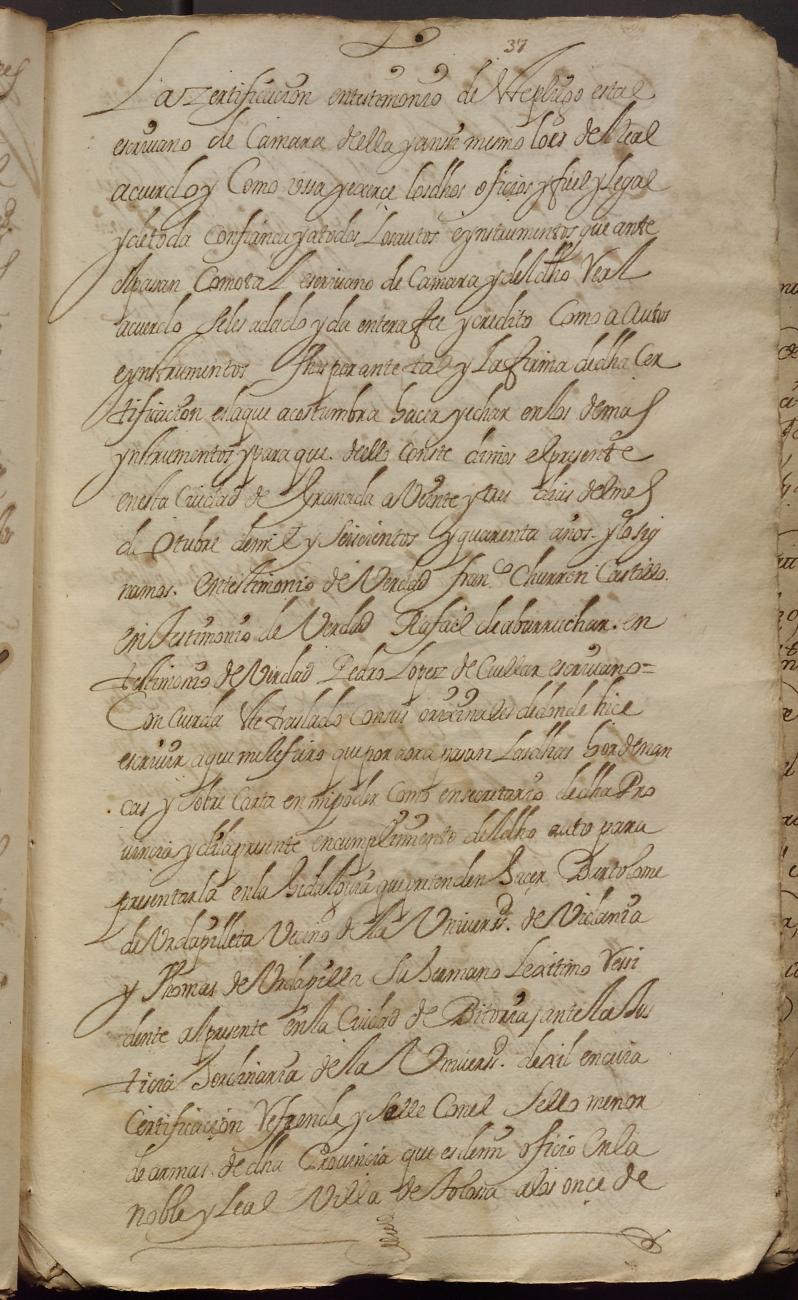 37
La zertificacion en testimonio de Vte pliego es tal
escriuano de Camara della y ansi mismo lo es del Real
acuerdo y Como usa y exerce los dhos oficios y fiel y legal
y de toda confianza y a todos Los autos e ynstrumentos que ante
el pasan Como tal escriuano de Camara y del dho Real
acuerdo se les a dado y da entera fee y credito Como a Autos
e ynstrumentos fhos por ante tal y La firma de dha Cer
tificacion es la que acostumbra hacer y echar en los demas
ynstrumentos y para que dello conste damos el presente
en esta Ciudad de Granada a Veinte y tres dias del mes
de Otubre de mil y Seiscientos y quarenta años y lo sig
namos. en testimonio de Verdad Fran.co Churron Castillo.
en Testimonio de Verdad Rafael de aburruchar. en
testimonio de Verdad Pedro Lopez de Cuellar escriuano=
Concuerda este traslado con sus originales de donde hice
escriuir a que me refiero que por aora pasan Los dhas hordenan
cas y sobre Carta en mi poder como en secretario de dha Pro
uincia y di la presente en cumplimiento del dho auto para
presentarla en la hidalguia que pretenden hacer Bartolome
de Urdapilleta Vecino de la Universd. de Vidania
y Thomas de Urdapilla su hermano Legitimo Resi
dente al presente en la Ciudad de Bitoria, ante la Jus
ticia hordinaria de la Universd. de xil en cuia
Certificacion Refrende y Selle Con el Sello menor
de armas de dha Provincia que es de mi oficio en la
noble y Leal Villa de Tolosa a los once de